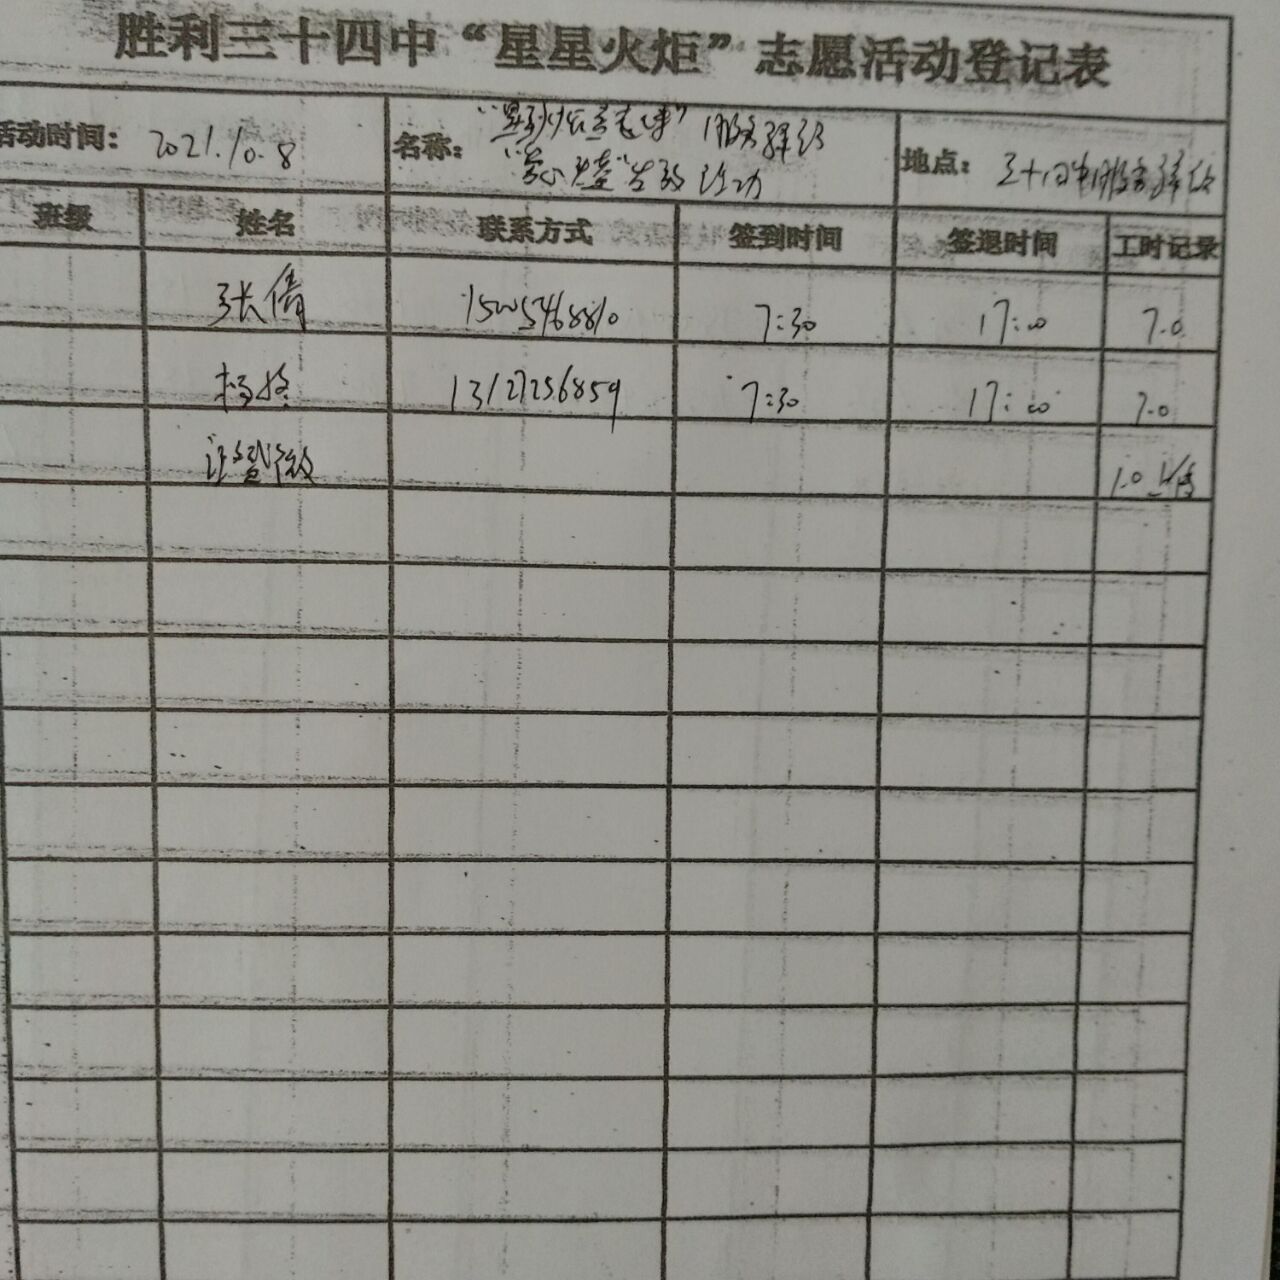 胜利三十四中“星星火炬”志愿活动登记表
活动时间： 2021.10.8 名称： 服务驿站 地点： 三十四中服务驿站
班级 姓名 联系方式 签到时间 签退时间 工时记录
张倩 15005468810 7:30 17:00 7.0
杨 13127256859 7:30 17:00 7.0
1.0